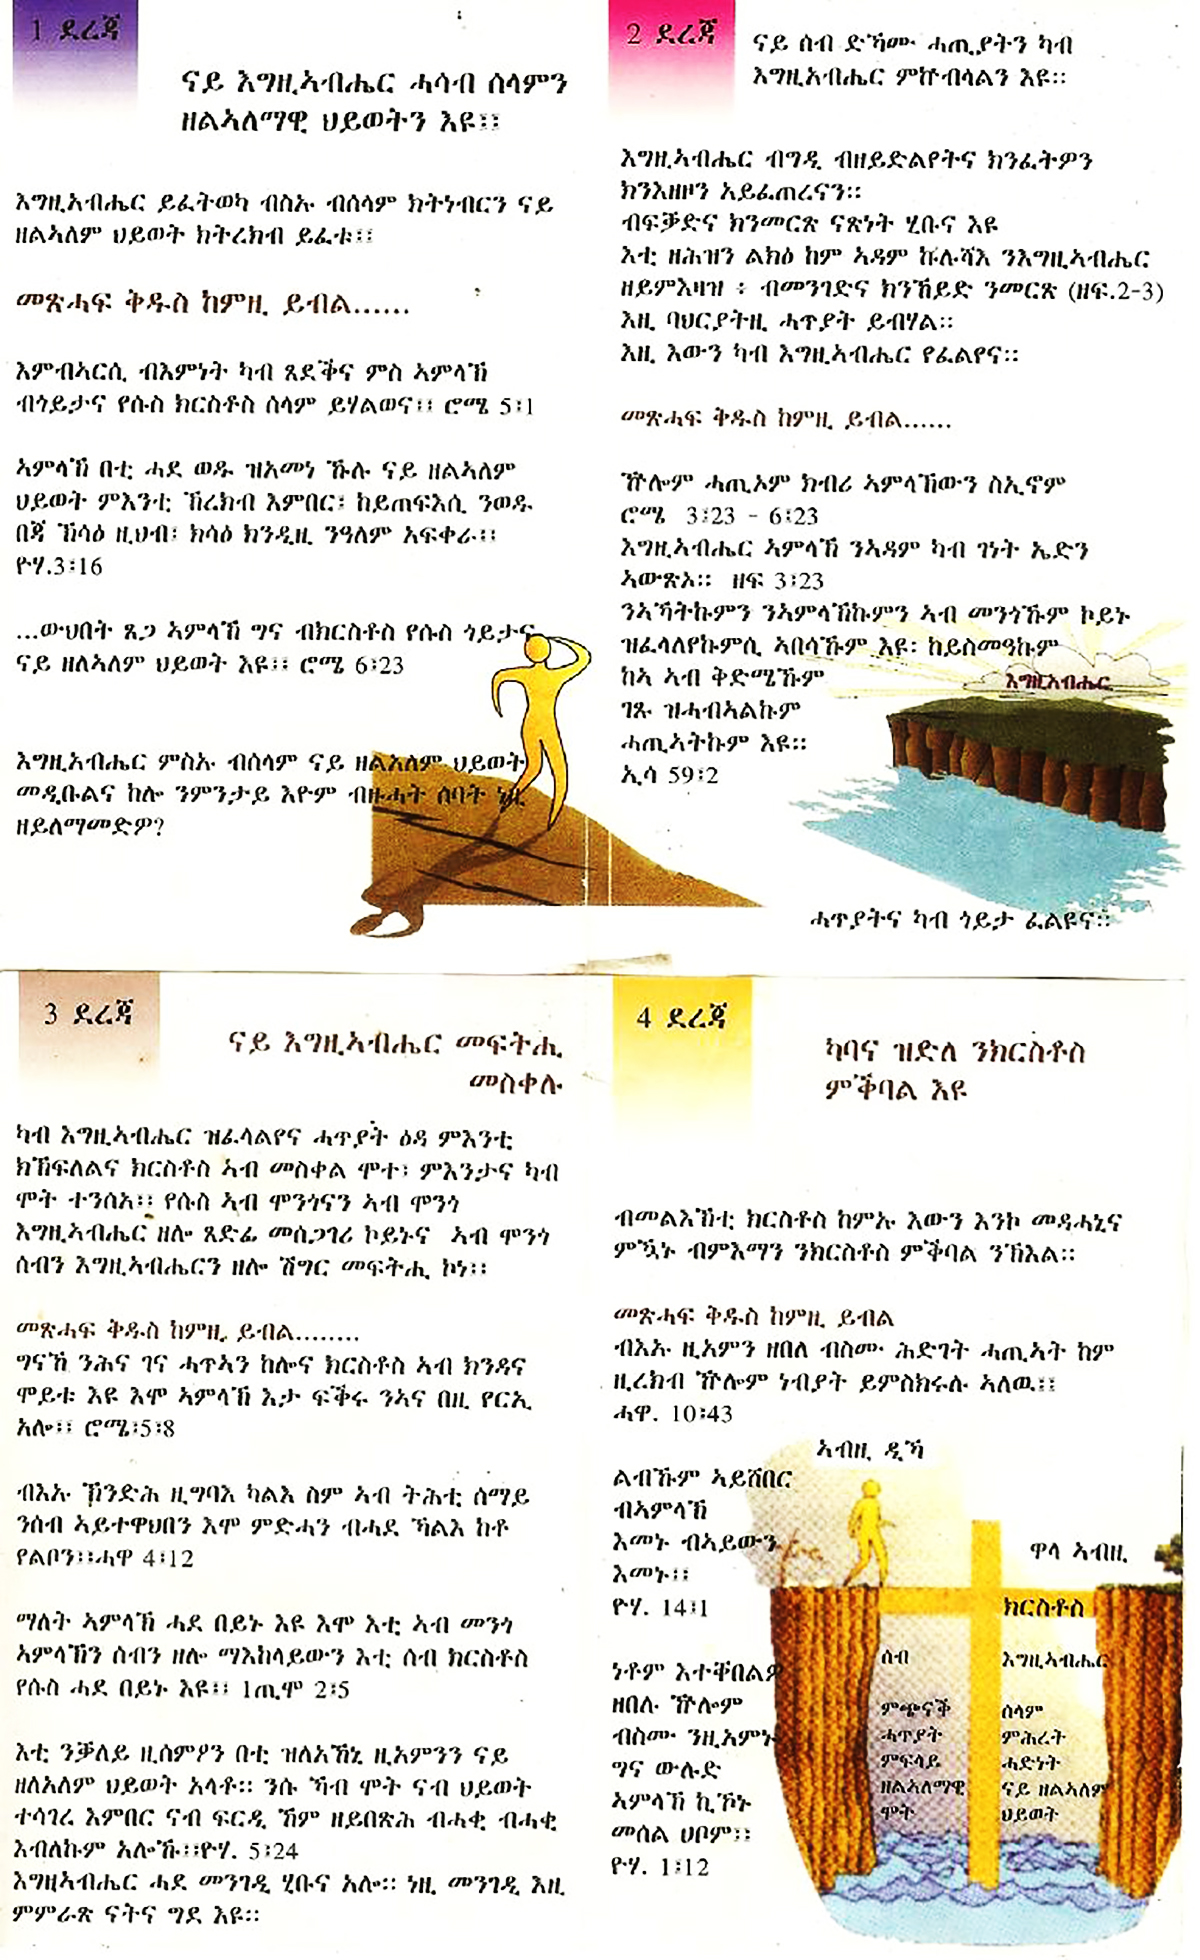 1 ደረጃ
ናይ እግዚኣብሔር ሓሳብ ሰላምን
ዘልኣለማዊ ህይወትን እዩ፡፡
እግዚአብሔር ይፈትወካ ብስኡ ብሰላም ክትነብርን ናይ
ዘልኣለም ህይወት ክትረክብ ይፈቱ፡፡
መጽሓፍ ቅዱስ ከምዚ ይብል......
እምብኣርሲ ብእምነት ካብ ጸደቅና ምስ ኣምላኽ
ብጎይታና የሱስ ክርስቶስ ሰላም ይሃልወና፡፡ ሮሜ 5፡1
ኣምላኽ በቲ ሓደ ወዱ ዝአመነ ኹሉ ናይ ዘልኣለም
ህይወት ምእንቲ ኸረክብ እምበር፡ ከይጠፍእሲ ንወዱ
በጃ ኽሳዕ ዚህብ፡ ክሳዕ ክንዲዚ ንዓለም አፍቀራ፡፡
ዮሃ.3፡16
...ውህበት ጸጋ ኣምላኽ ግና ብክርስቶስ የሱስ ጎይታና
ናይ ዘለኣለም ህይወት እዩ፡፡ ሮሜ 6፡23
እግዚአብሔር ምስኡ ብሰላም ናይ ዘልአለም ህይወት
መዲቡልና ከሎ ንምንታይ እዮም ብዙሓት ሰባት ነዚ
ዘይለማመድዎ?
2 ደረጃ
ናይ ሰብ ድኻሙ ሓጢያትን ካብ
እግዚአብሔር ምኵብላልን እዩ፡፡
እግዚኣብሔር ብግዲ ብዘይድልየትና ክንፈትዎን
ክንእዘዞን አይፈጠረናን፡፡
ብፍቓድና ክንመርጽ ናጽነት ሂቡና እዩ
እቲ ዘሕዝን ልክዕ ከም ኣዳም ኩሉሻእ ንእግዚኣብሔር
ዘይምእዛዝ ፥ ብመንገድና ክንኸይድ ንመርጽ (ዘፍ.2-3)
እዚ ባህርያትዚ ሓጥያት ይብሃል፡፡
እዚ እውን ካብ እግዚኣብሔር የፈልየና፡፡
መጽሓፍ ቅዱስ ከምዚ ይብል......
ኵሎም ሓጢኦም ክብሪ ኣምላኸውን ስኢኖም
ሮሜ 3፡23 - 6፡23
እግዚኣብሔር ኣምላኽ ንኣዳም ካብ ገነት ኤድን
ኣውጽአ፡፡ ዘፍ 3፡23
ንኣኻትኩምን ንኣምላኽኩምን ኣብ መንጎኹም ኮይኑ
ዝፈላለየኩምሲ ኣበሳኹም እዩ፡ ከይስመዓኩም
ከኣ ኣብ ቅድሜኹም
ገጹ ዝሓብኣልኩም
ሓጢኣትኩም እዩ፡፡
ኢሳ 59፡2
እግዚአብሔር
ሓጥያትና ካብ ጎይታ ፈልዩና፡፡
3 ደረጃ
ናይ እግዚኣብሔር መፍትሒ
መስቀሉ
ካብ እግዚኣብሔር ዝፈላልየና ሓጥያት ዕዳ ምእንቲ
ክኸፍለልና ክርስቶስ ኣብ መስቀል ሞተ፡ ምእንታና ካብ
ሞት ተንሰአ፡፡ የሱስ ኣብ ሞንጎናን ኣብ ሞንጎ
እግዚኣብሔር ዘሎ ጸድፊ መሰጋገሪ ኮይኑና ኣብ ሞንጎ
ሰብን እግዚኣብሔርን ዘሎ ሽግር መፍትሒ ኮነ፡፡
መጽሓፍ ቅዱስ ከምዚ ይብል........
ግናኸ ንሕና ገና ሓጥኣን ከሎና ክርስቶስ ኣብ ክንዳና
ሞይቱ እዩ እሞ ኣምላኽ እታ ፍቅሩ ንኣና በዚ የርኢ
አሎ፡፡ ሮሜ፡5፡8
ብእኡ ኽንድሕ ዚግባእ ካልእ ስም ኣብ ትሕቲ ሰማይ
ንሰብ ኣይተዋህበን እሞ ምድሓን ብሓደ ኻልእ ከቶ
የልቦን፡፡ሓዋ 4፡12
ማለት ኣምላኽ ሓደ በይኑ እዩ እሞ እቲ ኣብ መንጎ
ኣምላኽን ሰብን ዘሎ ማእከላይውን እቲ ሰብ ክርስቶስ
የሱስ ሓደ በይኑ እዩ፡፡ 1ጢሞ 2፡5
እቲ ንቓለይ ዚሰምዖን በቲ ዝለአኸኒ ዚአምንን ናይ
ዘለአለም ህይወት አላቶ፡፡ ንሱ ኻብ ሞት ናብ ህይወት
ተሳገረ እምበር ናብ ፍርዲ ኸም ዘይበጽሕ ብሓቂ ብሓቂ
እብለኩም አሎኹ፡፡ዮሃ. 5፡24
እግዚኣብሔር ሓደ መንገዲ ሂቡና አሎ፡፡ ነዚ መንገዲ እዚ
ምምራጽ ናትና ግደ እዩ፡፡
4 ደረጃ
ካባና ዝድለ ንክርስቶስ
ምቕባል እዩ
ብመልእኽቲ ክርስቶስ ከምኡ እውን እንኮ መዳሓኒና
ምዃኑ ብምእማን ንክርስቶስ ምቕባል ንኽእል፡፡
መጽሓፍ ቅዱስ ከምዚ ይብል
ብእኡ ዚአምን ዘበለ ብስሙ ሕድገት ሓጢኣት ከም
ዚረክብ ኵሎም ነብያት ይምስክሩሉ ኣለዉ፡፡
ሓዋ. 10፡43
ልብኹም ኣይሸበር
ብኣምላኽ
እመኑ ብኣይውን
እመኑ፡፡
ዮሃ. 14፡1
ነቶም እተቐበልዎ
ዘበሉ ኵሎም
ብስሙ ንዚአምኑ
ግና ውሉድ
ኣምላኽ ኪኾኑ
መሰል ሀቦም፡፡
ዮሃ. 1፡12
ኣብዚ ዲኻ
ዋላ ኣብዚ
ክርስቶስ
ሰብ
እግዚኣብሔር
ምጭናቕ
ሓጥያት
ምፍላይ
ዘልኣለማዊ
ሞት
ሰላም
ምሕረት
ሓድነት
ናይ ዘልኣለም
ህይወት